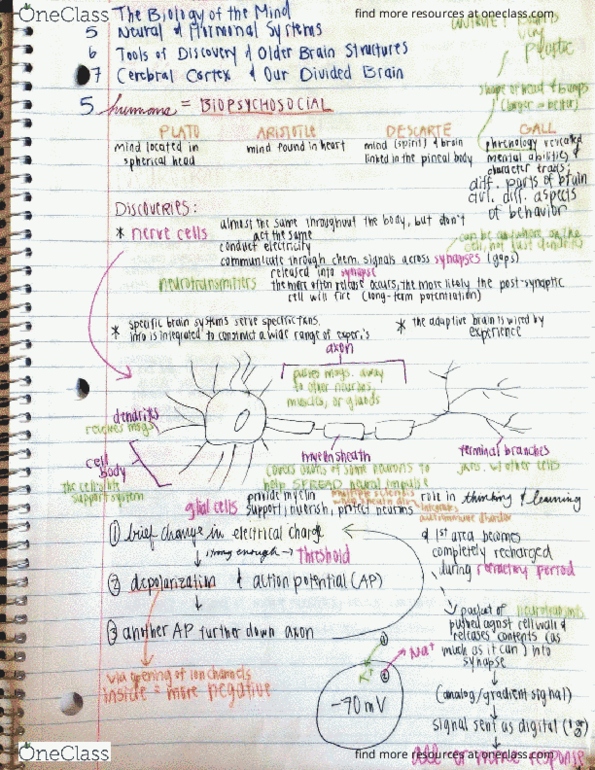 OneClass
find more resources at oneclass.com
The Biology of the Mind
5 Neural & Hormonal Systems
6 Tools of Discovery & Older Brain Structures
7 Cerebral Cortex & Our Divided Brain
very plastic
shape of head & bumps
(larger = better)
5 humans = BIOPSYCHOSOCIAL
PLATO
mind located in
spherical head
ARISTOTLE
mind found in heart
DESCARTE
mind (spirit) & brain
linked in the pineal body
GALL
phrenology revealed
mental abilities &
character traits;
diff. parts of brain
diff. aspects
of behavior
Discoveries:
* nerve cells
almost the same throughout the body, but don't
act the same
conduct electricity
communicate through chem. signals across synapses (gaps)
can be anywhere on the
cell, not just dendrite
neurotransmitters
released into synapse
the more often release occurs, the more likely the post-synaptic
cell will fire (long-term potentiation)
* specific brain systems serve specific fxns.
info is integrated to construct a wide range of exper.'s
* the adaptive brain is wired by
experience
axon
pushes msgs. away
to other neurons,
muscles, or glands
dendrites
receives msgs
cell
body
the cell's life
support system
myelin sheath
covers axons of some neurons to
help SPEED neural impulse
terminal branches
w/ other cells
glial cells
provide myelin
support, nourish, protect neurons
multiple sclerosis
autoimmune disorder
role in thinking & learning
① brief change in electrical charge
strong enough → Threshold
② depolarization & action potential (AP)
③ another AP further down axon
via opening of ion channels
inside = more negative
& 1st area becomes
completely recharged
during refractory period
packet of neurotransmitters
pushed against cell wall &
releases contents (as
much as it can) into
synapse
Na+
K+
-70mV
(analog/gradient signal)
signal sent as digital
all or none response
OneClass
find more resources at oneclass.com